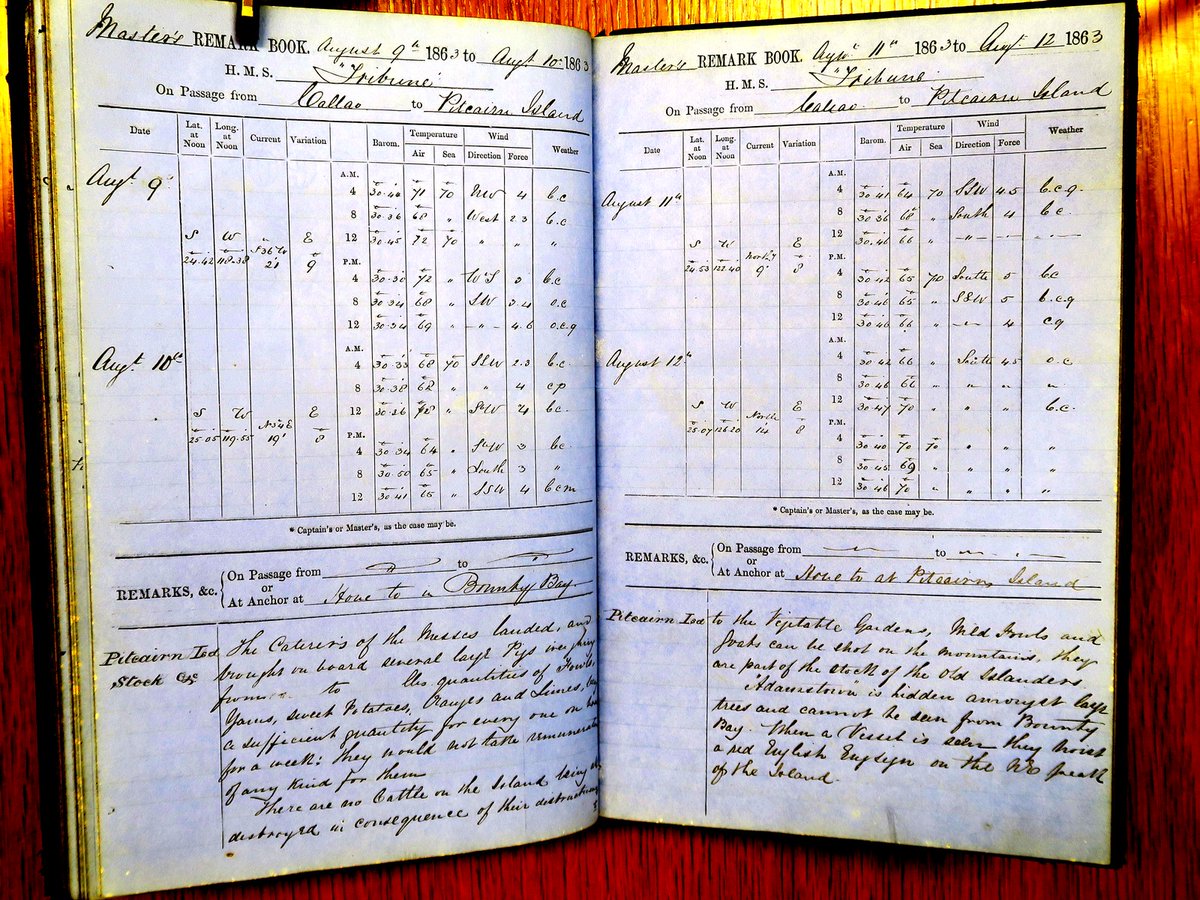 Master's REMARK BOOK. August 9th 1863 to Augt 10th 1863
H. M. S. "Tribune"
On Passage from Callao to Pitcairn Island
Date Lat. at Noon Long. at Noon Current Variation Barom. Temperature Air Sea Wind Direction Force Weather
A.M.
Augt 9th 4 30.44 71 70 NW 4 b.c
8 30.36 68 " West 2.3 b.c
S W E 12 30.45 72 70 " " "
24.42 118.38 21 9 P.M.
4 30.30 72 " 3 b.c
8 30.34 68 " SW 3.4 o.c
12 30.34 69 " - " - 4.6 o.c.q
A.M.
Augt 10th 4 30.33 68 70 SSW 2.3 b.c
8 30.38 62 " " 4 cp
S W E 12 30.36 " 4 b.c.
25.05 119.55 19' 8 P.M.
4 30.34 64 " 3 b.c
8 30.50 65 " South 3 "
12 30.41 65 " SSW 4 b.c.m
* Captain's or Master's, as the case may be.
REMARKS, &c. On Passage from to
or
At Anchor at Hove to in Bounty Bay
Pitcairn Isd Stock &c
The Caterers of the Messes landed, and
brought on board several large Pigs weighing
from to lbs quantities of Fowls,
Yams, sweet Potatoes, Oranges and Limes,
a sufficient quantity for every one on
for a week; they would not take
of any kind for them
There are no Cattle on the Island being
destroyed in consequence of their
Master's REMARK BOOK. Augt 11th 1863 to Augt 12 1863
H. M. S. "Tribune"
On Passage from Callao to Pitcairn Island
Date Lat. at Noon Long. at Noon Current Variation Barom. Temperature Air Sea Wind Direction Force Weather
A.M.
August 11th 4 30.41 64 70 SSW 4.5 b.c.q.
8 30.36 68 " South 4 b.c.
S W E 12 30.46 66 " - " -
24.53 122.40 9' 8 P.M.
4 30.42 65 70 South 5 b.c
8 30.46 65 " SSW 5 b.c.q
12 30.46 66 " 4 cq
A.M.
August 12th 4 30.42 66 " South 4.5 o.c.
8 30.46 66 " " " "
S W North E 12 30.47 70 " " " b.c.
25.07 126.20 14' 8 P.M.
4 30.40 70 70 " " "
8 30.45 69 " " "
12 30.46 70 " " " "
* Captain's or Master's, as the case may be.
REMARKS, &c. On Passage from to
or
At Anchor at Hove to at Pitcairn Island
Pitcairn Isd to the Vegitable Gardens, Wild Fowls and
Goats can be shot on the mountains, they
are part of the stock of the old Islanders.
Adamstown is hidden amongst large
trees and cannot be seen from Bounty
Bay. When a Vessel is seen they hoist
a red English Ensign on the NE peak
of the Island.